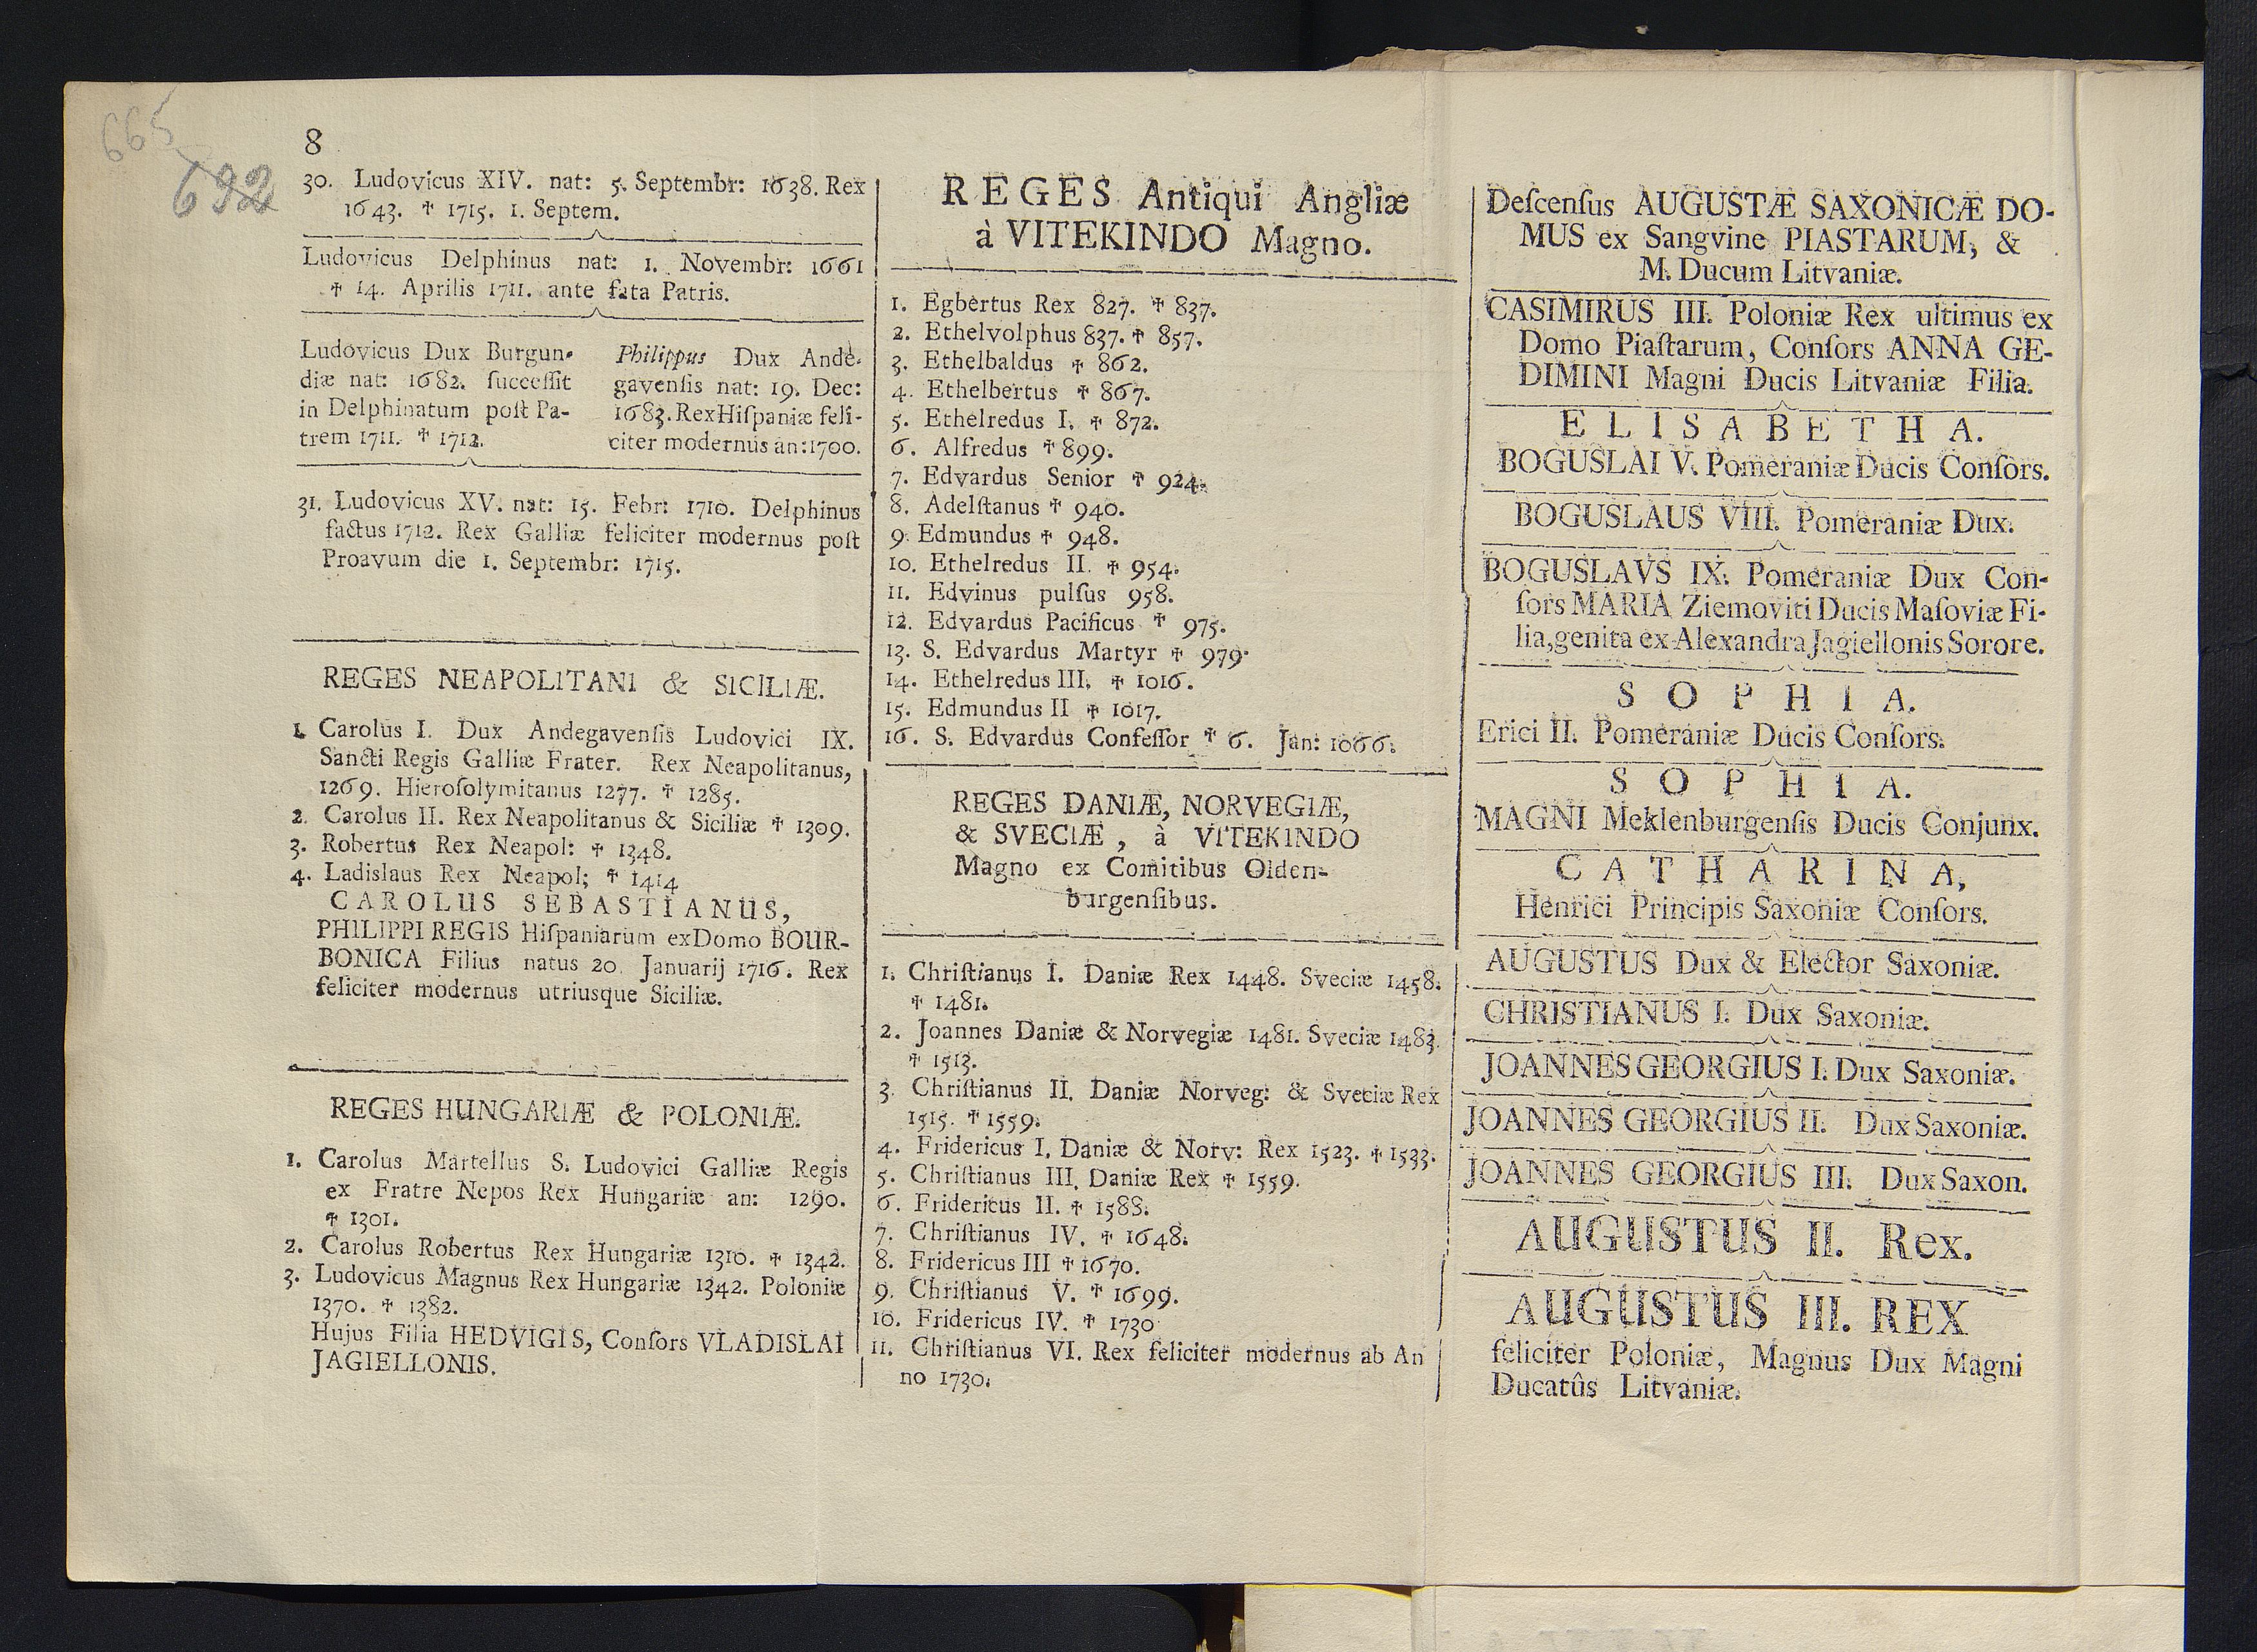 665
692
8
30. Ludovicus XIV. nat: 5. Septembr: 1638. Rex
1643. ✝ 1715. 1. Septem.
Ludovicus Delphinus nat: 1. Novembr: 1661
✝ 14. Aprilis 1711. ante fata Patris.
Ludovicus Dux Burgun-
diæ nat: 1682. ſucceſſit
in Delphinatum poſt Pa-
trem 1711. ✝ 1712.
Philippus Dux Ande-
gavenſis nat: 19. Dec:
1683. Rex Hiſpaniæ feli-
citer modernus an: 1700.
31. Ludovicus XV. nat: 15. Febr: 1710. Delphinus
factus 1712. Rex Galliæ feliciter modernus poſt
Proavum die 1. Septembr: 1715.
REGES NEAPOLITANI & SICILIÆ.
1. Carolus I. Dux Andegavenſis Ludovici IX.
Sancti Regis Galliæ Frater. Rex Neapolitanus,
1269. Hieroſolymitanus 1277. ✝ 1285.
2. Carolus II. Rex Neapolitanus & Siciliæ ✝ 1309.
3. Robertus Rex Neapol: ✝ 1348.
4. Ladislaus Rex Neapol; ✝ 1414
CAROLUS SEBASTIANUS,
PHILIPPI REGIS Hiſpaniarum ex Domo BOUR-
BONICA Filius natus 20. Januarij 1716. Rex
feliciter modernus utriusque Siciliæ.
REGES HUNGARIÆ & POLONIÆ.
1. Carolus Martellus S. Ludovici Galliæ Regis
ex Fratre Nepos Rex Hungariæ an: 1290.
✝ 1301.
2. Carolus Robertus Rex Hungariæ 1310. ✝ 1342.
3. Ludovicus Magnus Rex Hungariæ 1342. Poloniæ
1370. ✝ 1382.
Hujus Filia HEDVIGIS, Conſors VLADISLAI
JAGIELLONIS.
REGES Antiqui Angliæ
à VITEKINDO Magno.
1. Egbertus Rex 827. ✝ 837.
2. Ethelvolphus 837. ✝ 857.
3. Ethelbaldus ✝ 862.
4. Ethelbertus ✝ 867.
5. Ethelredus I. ✝ 872.
6. Alfredus ✝ 899.
7. Edvardus Senior ✝ 924.
8. Adelſtanus ✝ 940.
9. Edmundus ✝ 948.
10. Ethelredus II. ✝ 954.
11. Edvinus pulſus 958.
12. Edvardus Pacificus ✝ 975.
13. S. Edvardus Martyr ✝ 979.
14. Ethelredus III. ✝ 1016.
15. Edmundus II ✝ 1017.
16. S. Edvardus Confeſſor ✝ 6. Jan: 1066.
REGES DANIÆ, NORVEGIÆ,
& SVECIÆ, à VITEKINDO
Magno ex Comitibus Olden-
burgenſibus.
1. Chriſtianus I. Daniæ Rex 1448. Sveciæ 1458.
✝ 1481.
2. Joannes Daniæ & Norvegiæ 1481. Sveciæ 1483.
✝ 1513.
3. Chriſtianus II. Daniæ Norveg: & Sveciæ Rex
1515. ✝ 1559.
4. Fridericus I. Daniæ & Norv: Rex 1523. ✝ 1533.
5. Chriſtianus III. Daniæ Rex ✝ 1559.
6. Fridericus II. ✝ 1588.
7. Chriſtianus IV. ✝ 1648.
8. Fridericus III ✝ 1670.
9. Chriſtianus V. ✝ 1699.
10. Fridericus IV. ✝ 1730
11. Chriſtianus VI. Rex feliciter modernus ab An
no 1730.
Deſcenſus AUGUSTÆ SAXONICÆ DO-
MUS ex Sangvine PIASTARUM, &
M. Ducum Litvaniæ.
CASIMIRUS III. Poloniæ Rex ultimus ex
Domo Piaſtarum, Conſors ANNA GE-
DIMINI Magni Ducis Litvaniæ Filia.
ELISABETHA.
BOGUSLAI V. Pomeraniæ Ducis Conſors.
BOGUSLAUS VIII. Pomeraniæ Dux.
BOGUSLAVS IX. Pomeraniæ Dux Con-
ſors MARIA Ziemoviti Ducis Maſoviæ Fi-
lia, genita ex Alexandra Jagiellonis Sorore.
SOPHIA.
Erici II. Pomeraniæ Ducis Conſors.
SOPHIA.
MAGNI Meklenburgenſis Ducis Conjunx.
CATHARINA,
Henrici Principis Saxoniæ Conſors.
AUGUSTUS Dux & Elector Saxoniæ.
CHRISTIANUS I. Dux Saxoniæ.
JOANNES GEORGIUS I. Dux Saxoniæ.
JOANNES GEORGIUS II. Dux Saxoniæ.
JOANNES GEORGIUS III. Dux Saxon.
AUGUSTUS II. Rex.
AUGUSTUS III. REX
feliciter Poloniæ, Magnus Dux Magni
Ducatûs Litvaniæ.